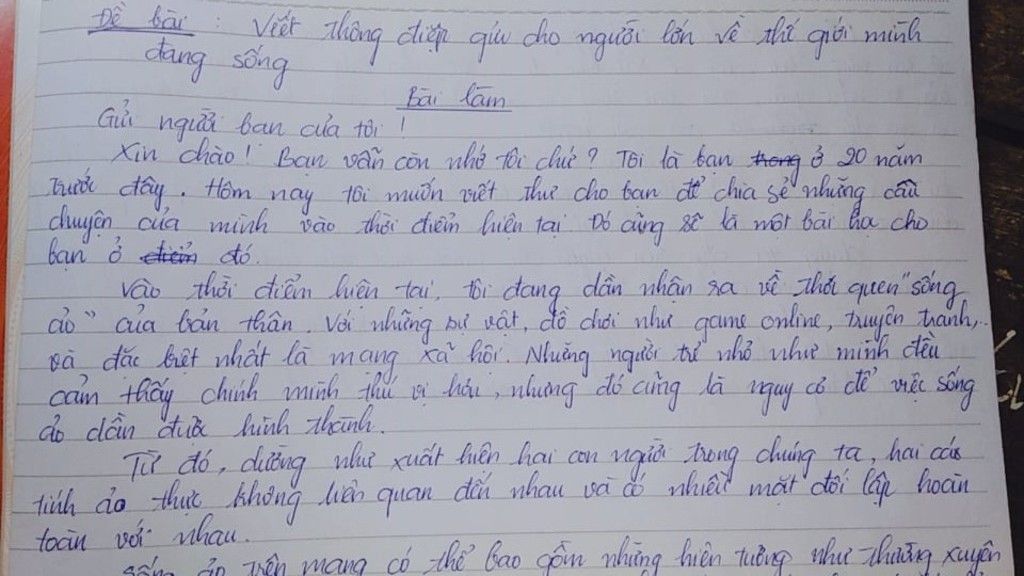 Đề bài : Viết thông điệp gửi cho người lớn về thế giới mình
đang sống
Bài làm
Gửi người bạn của tôi !
Xin chào ! Bạn vẫn còn nhớ tôi chứ ? Tôi là bạn trong ở 20 năm
trước đây . Hôm nay tôi muốn viết thư cho bạn để chia sẻ những câu
chuyện của mình vào thời điểm hiện tại Đó cũng sẽ là một bài học cho
bạn ở điểm đó.
Vào thời điểm hiện tại, tôi đang dần nhận ra về thói quen "sống
ảo" của bản thân . Với những sự vật, đồ chơi như game online, truyện tranh,..
và đặc biệt nhất là mạng xã hội. Những người trẻ nhỏ như mình đều
cảm thấy chính mình thú vị hơn, nhưng đó cũng là nguy cơ để việc sống
ảo dần được hình thành.
Từ đó, dường như xuất hiện hai con người trong chúng ta, hai cá
tính ảo thực không liên quan đến nhau và có nhiều mặt đối lập hoàn
toàn với nhau.
Sống ảo trên mạng có thể bao gồm những hiện tượng như thường xuyên